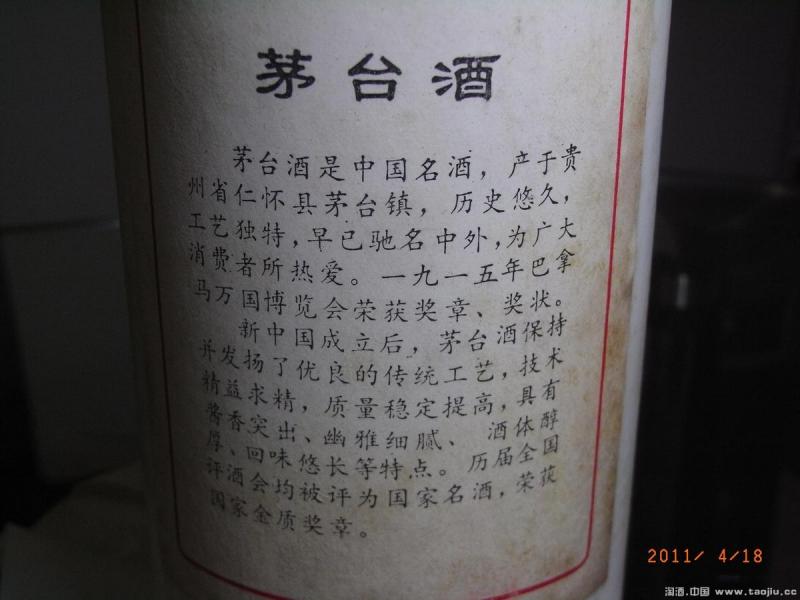 茅台酒
茅台酒是中国名酒，产于贵
州省仁怀县茅台镇，历史悠久，
工艺独特，早已驰名中外，为广大
消费者所热爱。一九一五年巴拿
马万国博览会荣获奖章、奖状。
新中国成立后，茅台酒保持
并发扬了优良的传统工艺，技术
精益求精，质量稳定提高，具有
酱香突出、幽雅细腻、酒体醇
厚、回味悠长等特点。历届全国
评酒会均被评为国家名酒，荣获
国家金质奖章。
2011/ 4/18
淘酒.中国 www.taojiu.cc